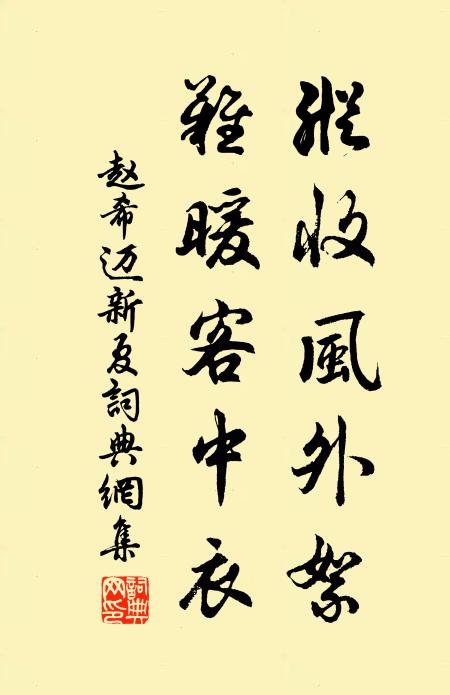 縱收風外絮
難暖客中衣
赵希迈新夏詞典網集
詞典网印